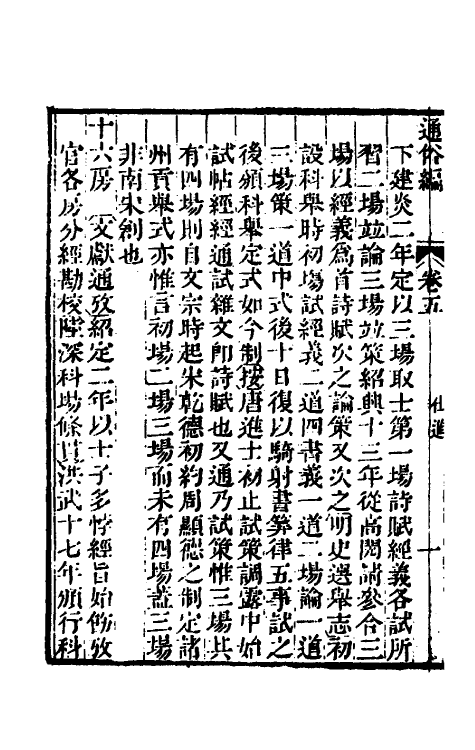 通俗編 卷五 仕進 一
下建炎二年定以三場取士第一場詩賦經義各試所
習二場並論三場並策紹興十三年從高閌請參合三
場以經義爲首詩賦次之論策又次之明史選舉志初
設科舉時初場試經義二道四書義一道二場論一道
三場策一道中式後十日復以騎射書算律五事試之
後頒科舉定式如今制按唐進士初止試策調露中始
試帖經經通試雜文即詩賦也又通乃試策惟三場共
有四場則自文宗時起宋乾德初約周顯德之制定諸
州貢舉式亦惟言初場二場三場而未有四場蓋三場
非南宋創也
十六房 文獻通攷紹定二年以士子多悖經旨始傚攷
官各房分經勘校陸深科場條貫洪武十七年頒行科